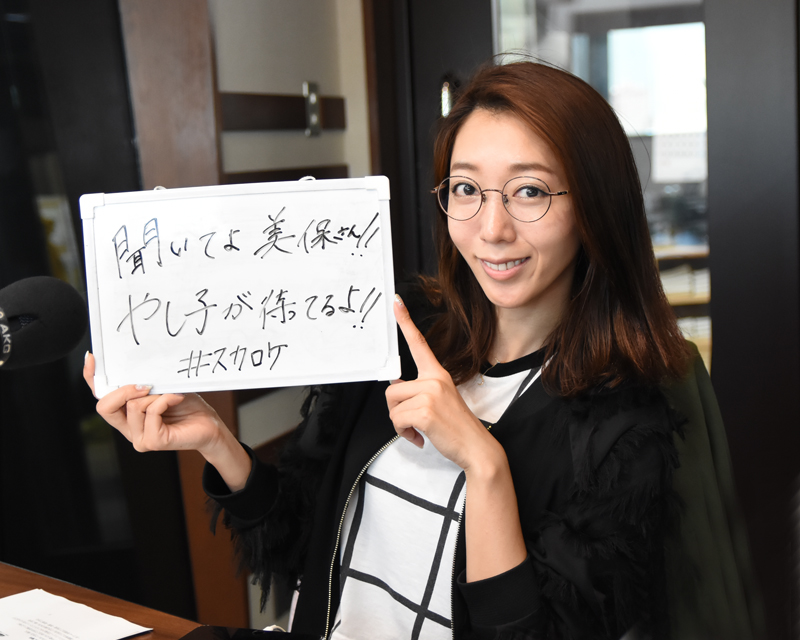 聞いてよ 美保さん!!
やし子が待ってるよ!!
#スカロケ